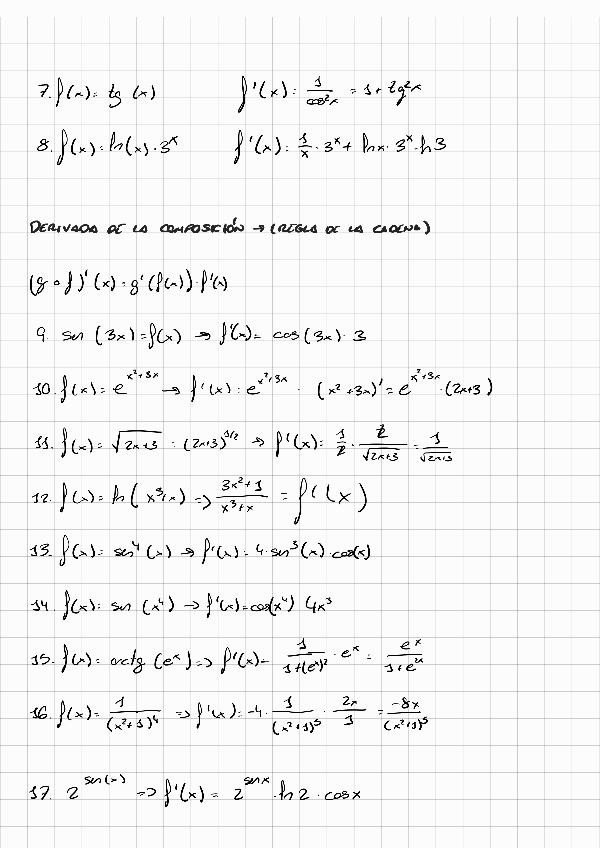 7. f(x) = tg (x) f'(x) = 1/cos²x = 1 + tg²x
8. f(x) = ln(x) · 3^x f'(x) = 1/x · 3^x + lnx · 3^x · ln 3
DERIVADA DE LA COMPOSICIÓN → (REGLA DE LA CADENA)
(g ∘ f)'(x) = g'(f(x)) · f'(x)
9. sen (3x) = f(x) → f'(x) = cos (3x) · 3
10. f(x) = e^(x²+3x) → f'(x) = e^(x²+3x) · (x²+3x)' = e^(x²+3x) · (2x+3)
11. f(x) = √(2x+3) = (2x+3)^(1/2) → f'(x) = 1/2 · 2/√(2x+3) = 1/√(2x+3)
12. f(x) = ln (x³+x) => (3x²+1)/(x³+x) = f'(x)
13. f(x) = sen⁴(x) → f'(x) = 4 · sen³(x) · cos(x)
14. f(x) = sen (x⁴) → f'(x) = cos(x⁴) 4x³
15. f(x) = arctg (e^x) => f'(x) = 1/(1+(e^x)²) · e^x = e^x/(1+e^(2x))
16. f(x) = 1/(x²+1)⁴ => f'(x) = -4 · 1/(x²+1)⁵ · 2x/1 = -8x/(x²+1)⁵
17. 2^(sen(x)) => f'(x) = 2^(senx) · ln 2 · cosx